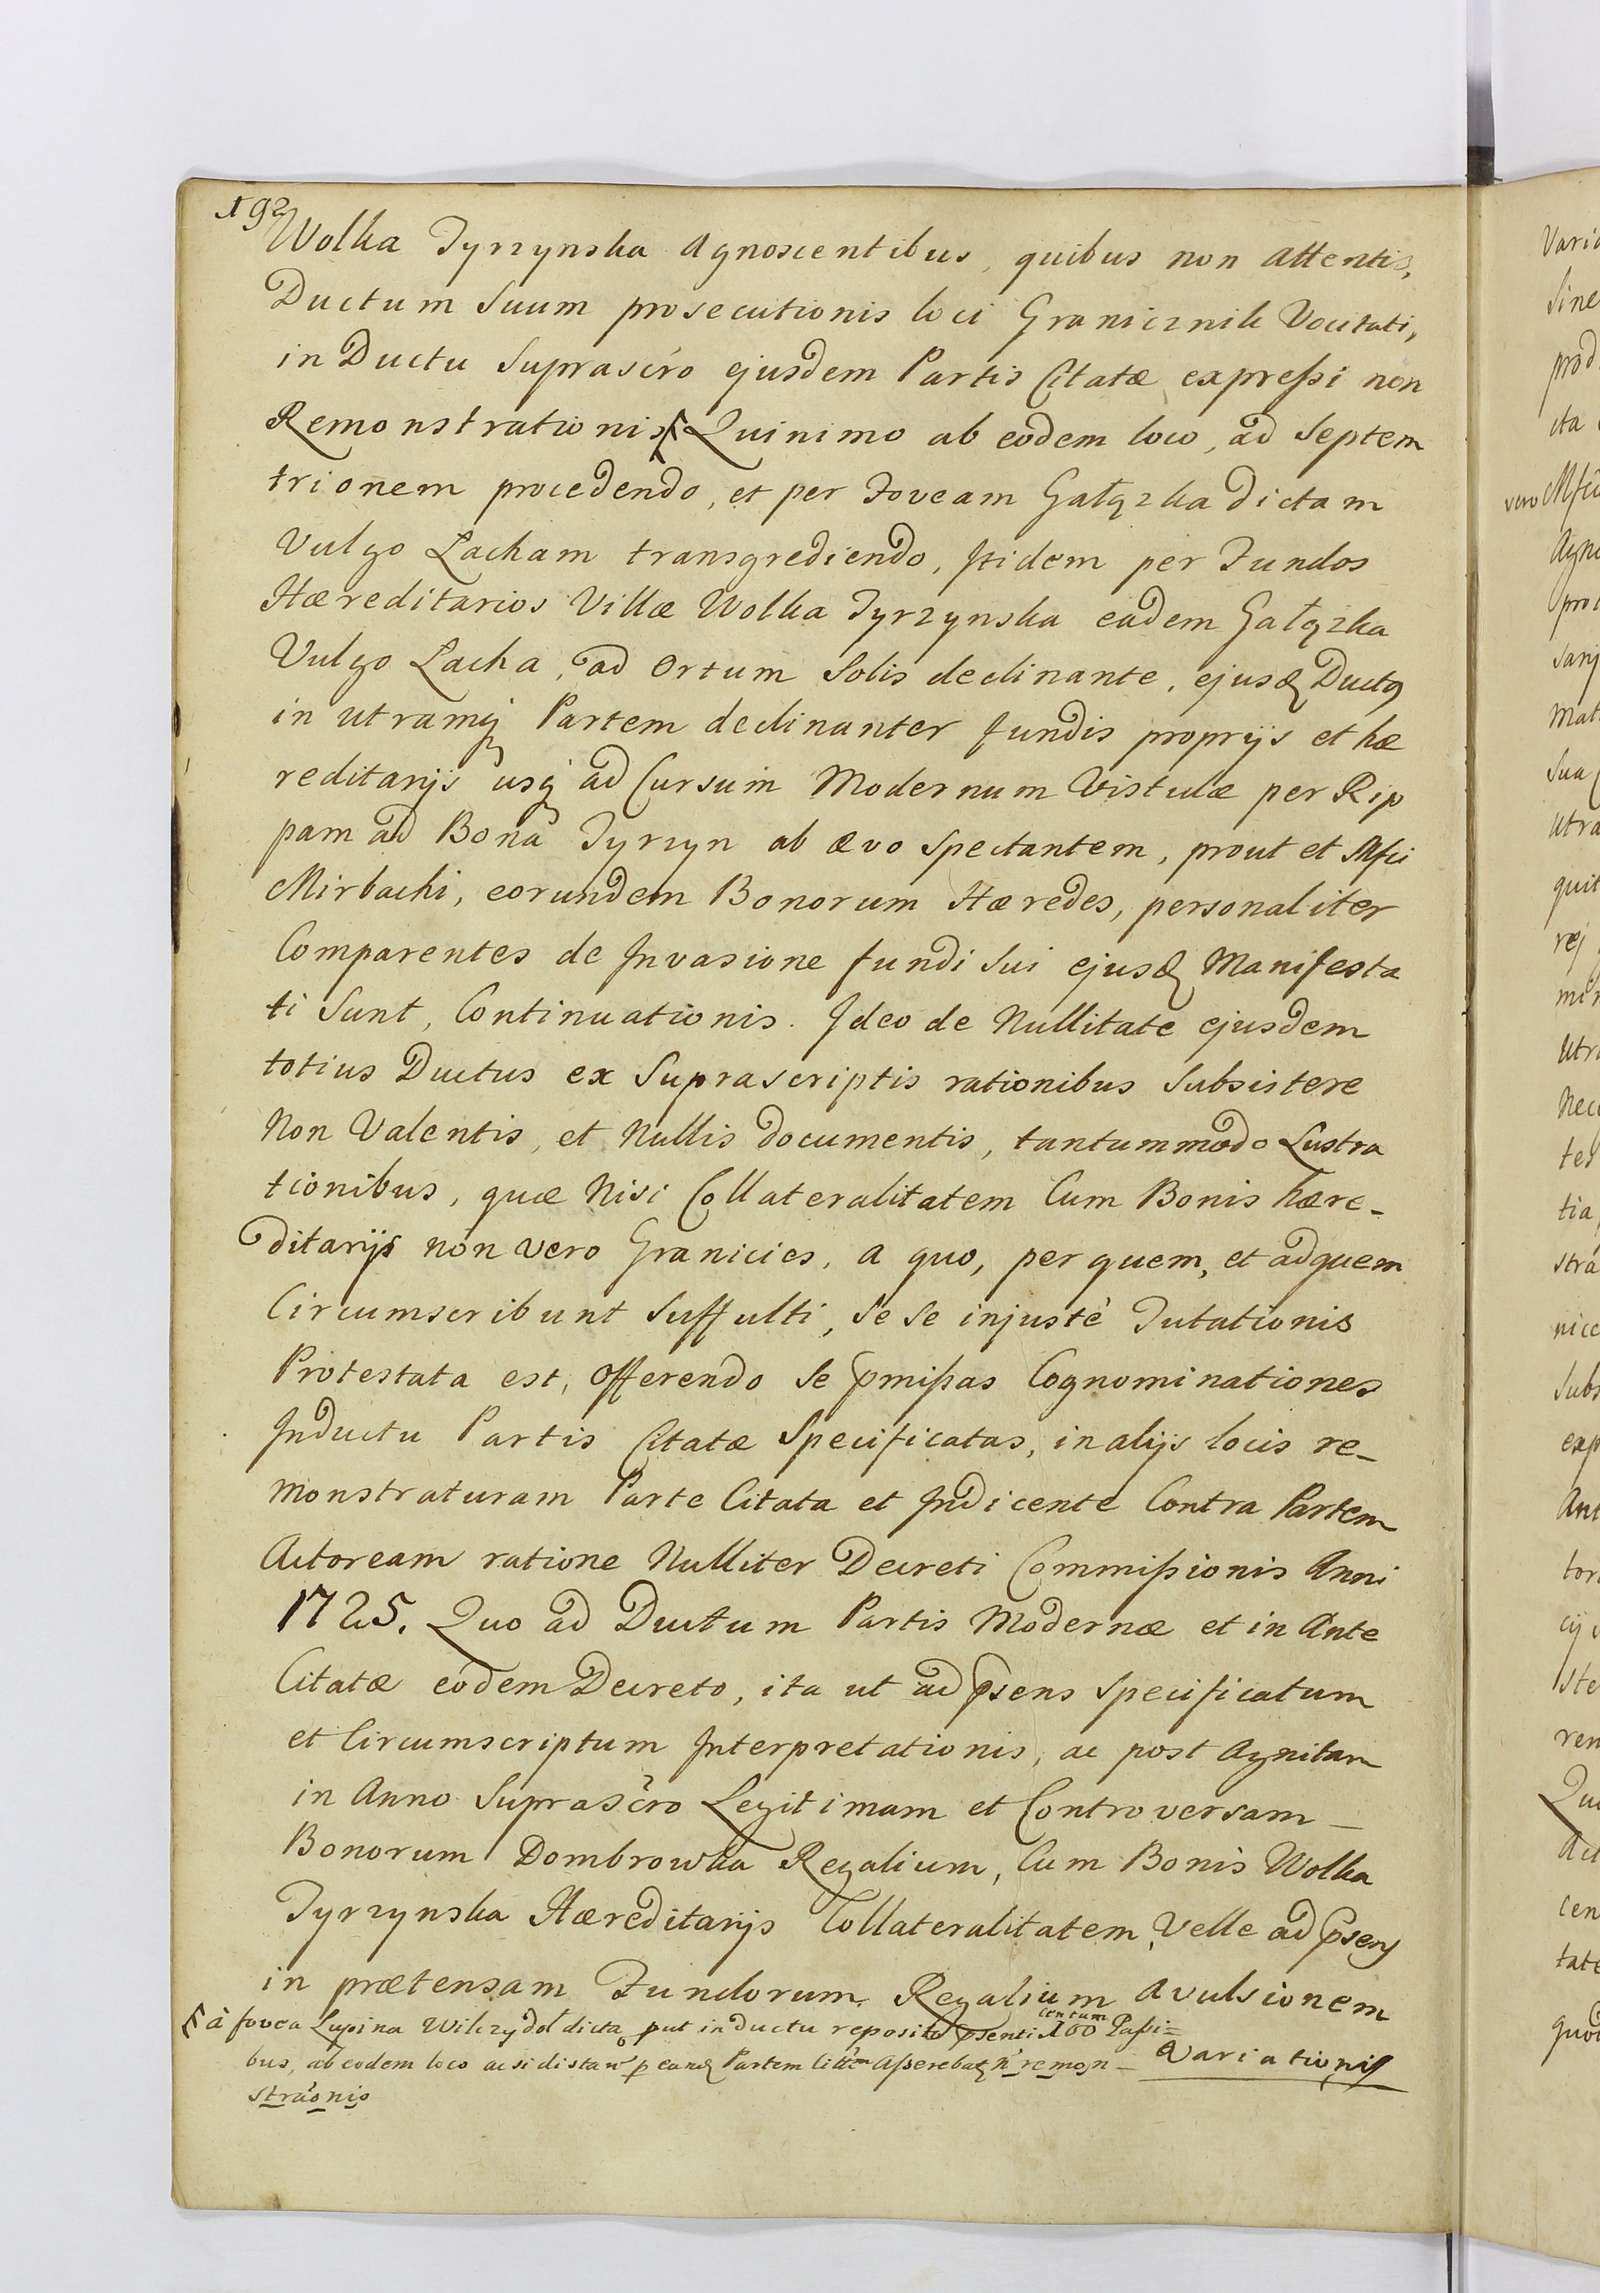 192
Wolka Tyrzynska Agnoscentibus, quibus non attentis,
Ductum Suum prosecutionis loci Granicznik Vocitati,
in Ductu Suprascro ejusdem Partis Citatæ expressi non
Remonstrationis Quinimo ab eodem loco, ad Septem
trionem procedendo, et per Foveam Gałązka dictam
Vulgo Lacham transgrediendo, Itidem per Fundos
Hæreditarios Villæ Wolka Tyrzynska eadem Gałązka
Vulgo Lacha, ad Ortum Solis declinante, ejusq Ductq
in utramq Partem declinanter fundis proprijs et hæ
reditarijs usq ad Cursum Modernum Vistulæ per Rip
pam ad Bona Tyrzyn ab ævo Spectantem, prout et Mfci
Mirbachi, eorundem Bonorum Hæredes, personaliter
Comparentes de Invasione fundi Sui ejusq Manifesta
ti Sunt, Continuationis. Ideo de Nullitate ejusdem
totius Ductus ex Suprascriptis rationibus Subsistere
Non Valentis, et Nullis documentis, tantummodo Lustra
tionibus, quæ Nisi Collateralitatem Cum Bonis hære-
ditarijs non vero Granicies, a quo, per quem, et adquem
Circumscribunt Suffulti, Se Se injustè Tutationis
Protestata est, Offerendo Se pmissas Cognominationes
Inductu Partis Citatæ Specificatas, in alijs locis re-
monstraturam Parte Citata et Indicente Contra Partem
Actoream ratione Nulliter Decreti Commissionis Anni
1725. Quo ad Ductum Partis Modernæ et in Ante
Citatæ eodem Decreto, ita ut ad psens Specificatum
et Circumscriptum Interpretationis, ac post Agnitam
in Anno Suprascro Legitimam et Controversam
Bonorum Dombrowka Regalium, Cum Bonis Wolka
Tyrzynska Hæreditarijs Collateralitatem, Velle ad psens
in prætensam Fundorum Regalium avulsionem
à fovea Lupina Wilczydoł dicta put in ductu reposito psenti centum 100 Passi=
bus, ab eodem loco ac si distan p eandq Partem Asserebatq remon-
straonis
Variationis